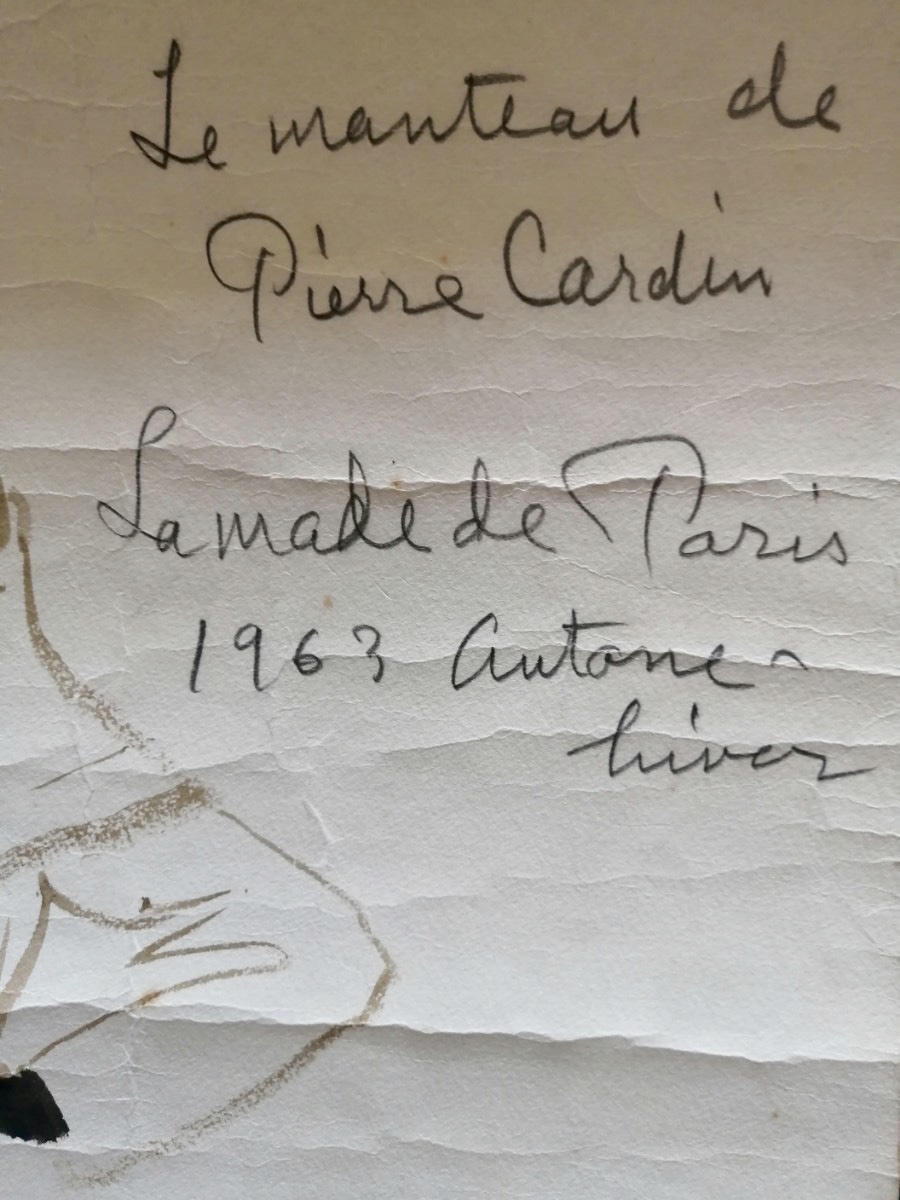 Le manteau de
Pierre Cardin
La made de Paris
1963 Autone -
hiver